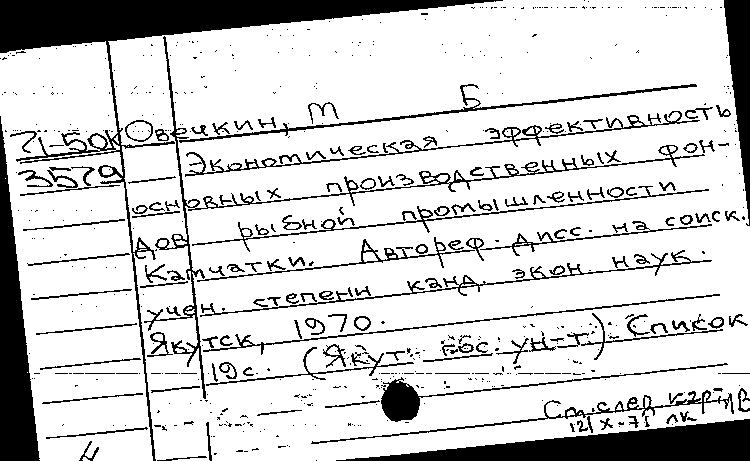 71-50К Овечкин, М Б
3579 Экономическая эффективность
основных производственных фон-
дов рыбной промышленности
Камчатки. Автореф. дисс. на соиск.
учен. степени канд. экон. наук.
Якутск, 1970.
19 с. (Якут. гос. ун-т). Список
См. след карт